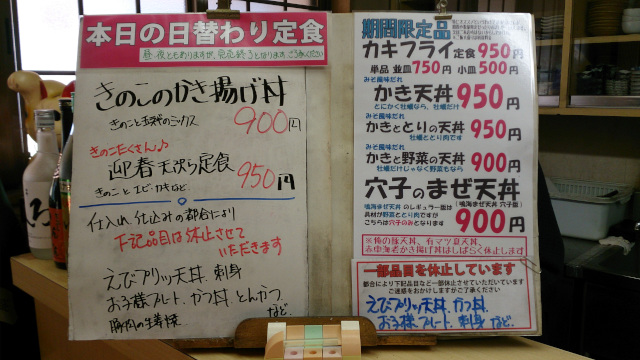 本日の日替わり定食
きのこのかき揚げ丼
きのこと玉ねぎのミックス
900円
きのこたくさん♪
迎春天ぷら定食
950円
きのことエビ、かきなど。
仕入れ、仕込みの都合により
下記品目は休止させて
いただきます
えびプリッ天丼、刺身
お子様プレート、かつ丼、とんかつ
豚肉の生姜焼 など、
期間限定品
カキフライ定食 950円
単品 並皿750円 小皿500円
みそ風味だれ
かき天丼 950円
とにかく牡蠣なら、牡蠣だけ
みそ風味だれ
かきととりの天丼 950円
牡蠣ととり肉です
みそ風味だれ
かきと野菜の天丼 900円
牡蠣だけじゃなく野菜もなら
穴子のまぜ天丼
(鳴海まぜ天丼 穴子版)
鳴海まぜ天丼 のレギュラー版は
具材が野菜ととり肉ですが
こちらは穴子のみとなります
900円
※俺の豚天丼、有マツ夏天丼、
赤中海老かき揚げ丼はしばらく休止します
一部品目を休止しています
都合により下記品目など一部休止させていただいています
ご迷惑をおかけしますがご了承ください
えびプリッ天丼、かつ丼、
お子様プレート、刺身 など、